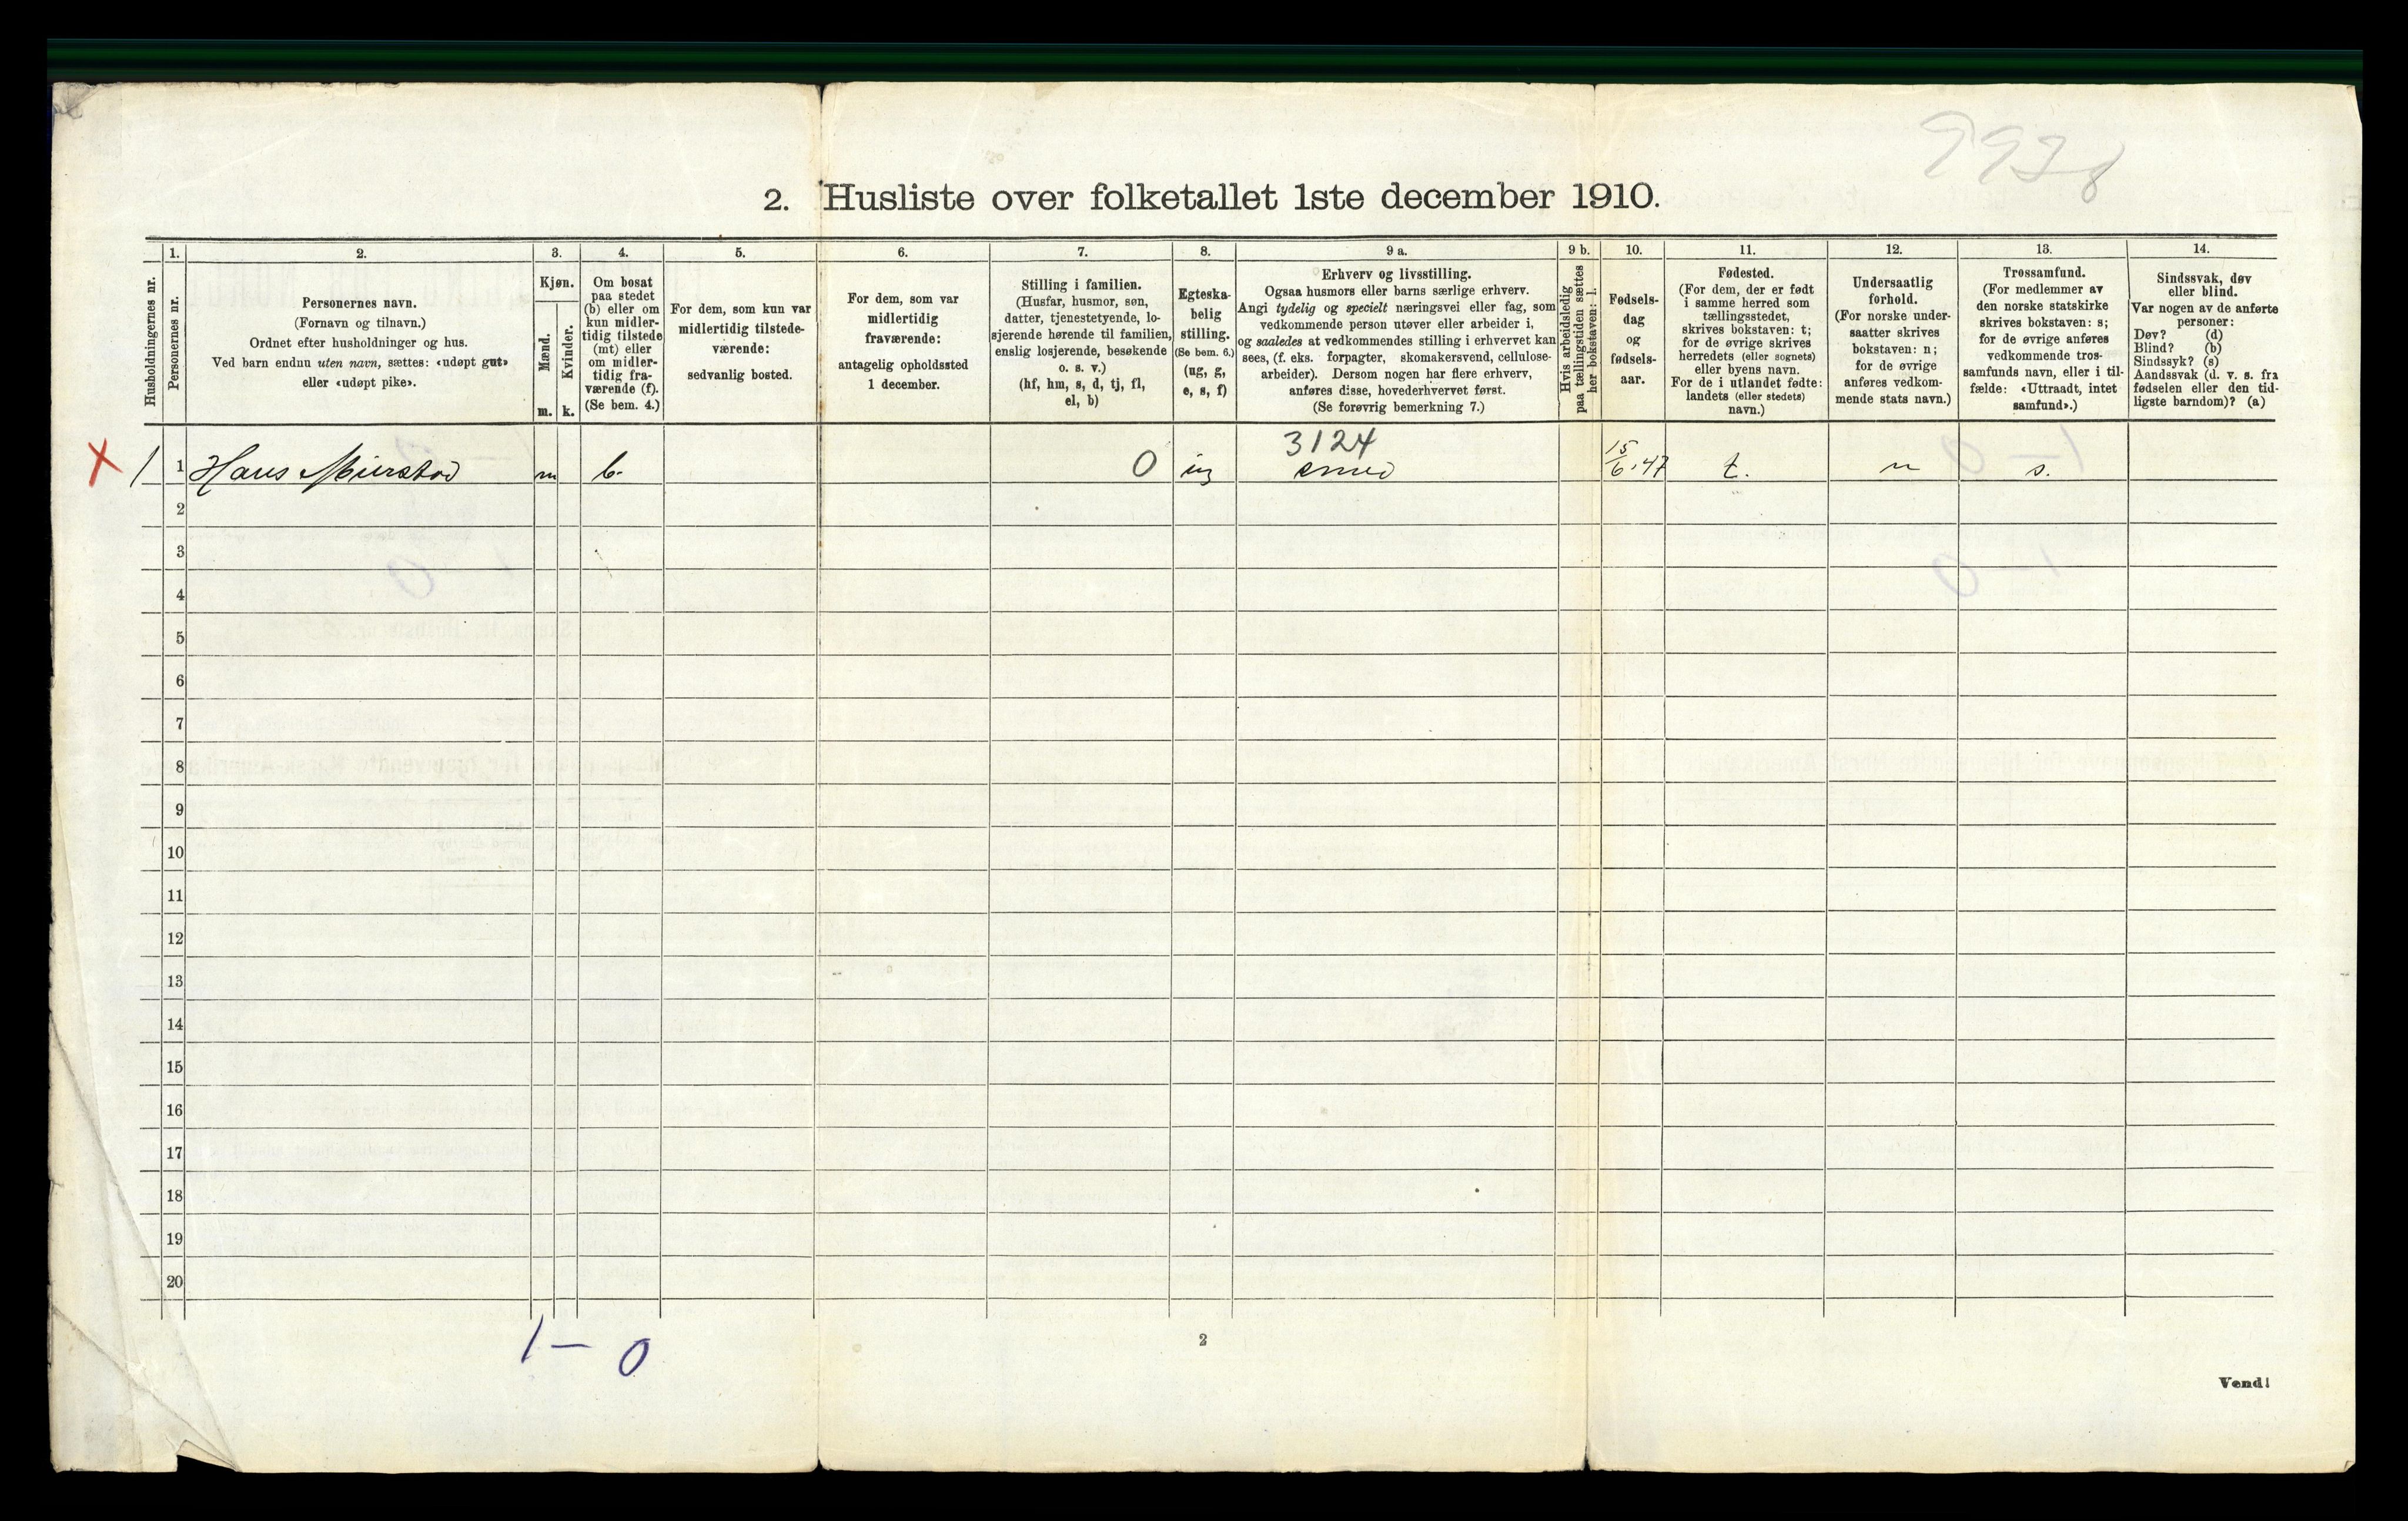 9928
2. Husliste over folketallet 1ste december 1910.
1. 2. 3. 4. 5. 6. 7. 8. 9 a. 9 b. 10. 11. 12. 13. 14.
Husholdningernes nr.
Personernes nr.
Personernes navn.
(Fornavn og tilnavn.)
Ordnet efter husholdninger og hus.
Ved barn endnu uten navn, sættes: «udøpt gut»
eller «udøpt pike».
Kjøn.
Mænd.
Kvinder.
m. k.
Om bosat
paa stedet
(b) eller om
kun midler-
tidig tilstede
(mt) eller
om midler-
tidig fra-
værende (f).
(Se bem. 4.)
For dem, som kun var
midlertidig tilstede-
værende:
sedvanlig bosted.
For dem, som var
midlertidig
fraværende:
antagelig opholdssted
1 december.
Stilling i familien.
(Husfar, husmor, søn,
datter, tjenestetyende, lo-
sjerende hørende til familien,
enslig losjerende, besøkende
o. s. v.)
(hf, hm, s, d, tj, fl,
el, b)
Egteska-
belig
stilling.
(Se bem. 6.)
(ug, g,
e, s, f)
Erhverv og livsstilling.
Ogsaa husmors eller barns særlige erhverv.
Angi tydelig og specielt næringsvei eller fag, som
vedkommende person utøver eller arbeider i,
og saaledes at vedkommendes stilling i erhvervet kan
sees, (f. eks. forpagter, skomakersvend, cellulose-
arbeider). Dersom nogen har flere erhverv,
anføres disse, hovederhvervet først.
(Se forøvrig bemerkning 7.)
Hvis arbeidsledig
paa tællingstiden sættes
her bokstaven: l.
Fødsels-
dag
og
fødsels-
aar.
Fødested.
(For dem, der er født
i samme herred som
tællingsstedet,
skrives bokstaven: t;
for de øvrige skrives
herredets (eller sognets)
eller byens navn.
For de i utlandet fødte:
landets (eller stedets)
navn.)
Undersaatlig
forhold.
(For norske under-
saatter skrives
bokstaven: n;
for de øvrige
anføres vedkom-
mende stats navn.)
Trossamfund.
(For medlemmer av
den norske statskirke
skrives bokstaven: s;
for de øvrige anføres
vedkommende tros-
samfunds navn, eller i til-
fælde: «Uttraadt, intet
samfund».)
Sindssvak, døv
eller blind.
Var nogen av de anførte
personer:
Døv? (d)
Blind? (b)
Sindssyk? (s)
Aandssvak (d. v. s. fra
fødselen eller den tid-
ligste barndom)? (a)
3124
X 1 1 Hans m b. 0 ug smed 15/6.47 t. n s.
2
3
4
5
6
7
8
9
10
11
12
13
14
15
16
17
18
19
20
1 — 0
2
Vend!